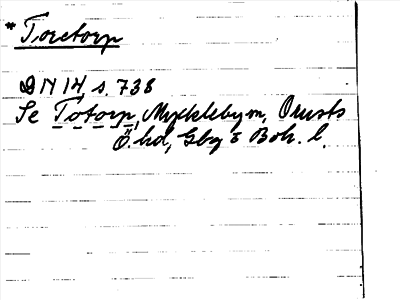 * Toretorp
DN 14, s. 738
Se Totorp, Myckleby sn, Orusts
Ö. hd, Gbg o Boh. l.